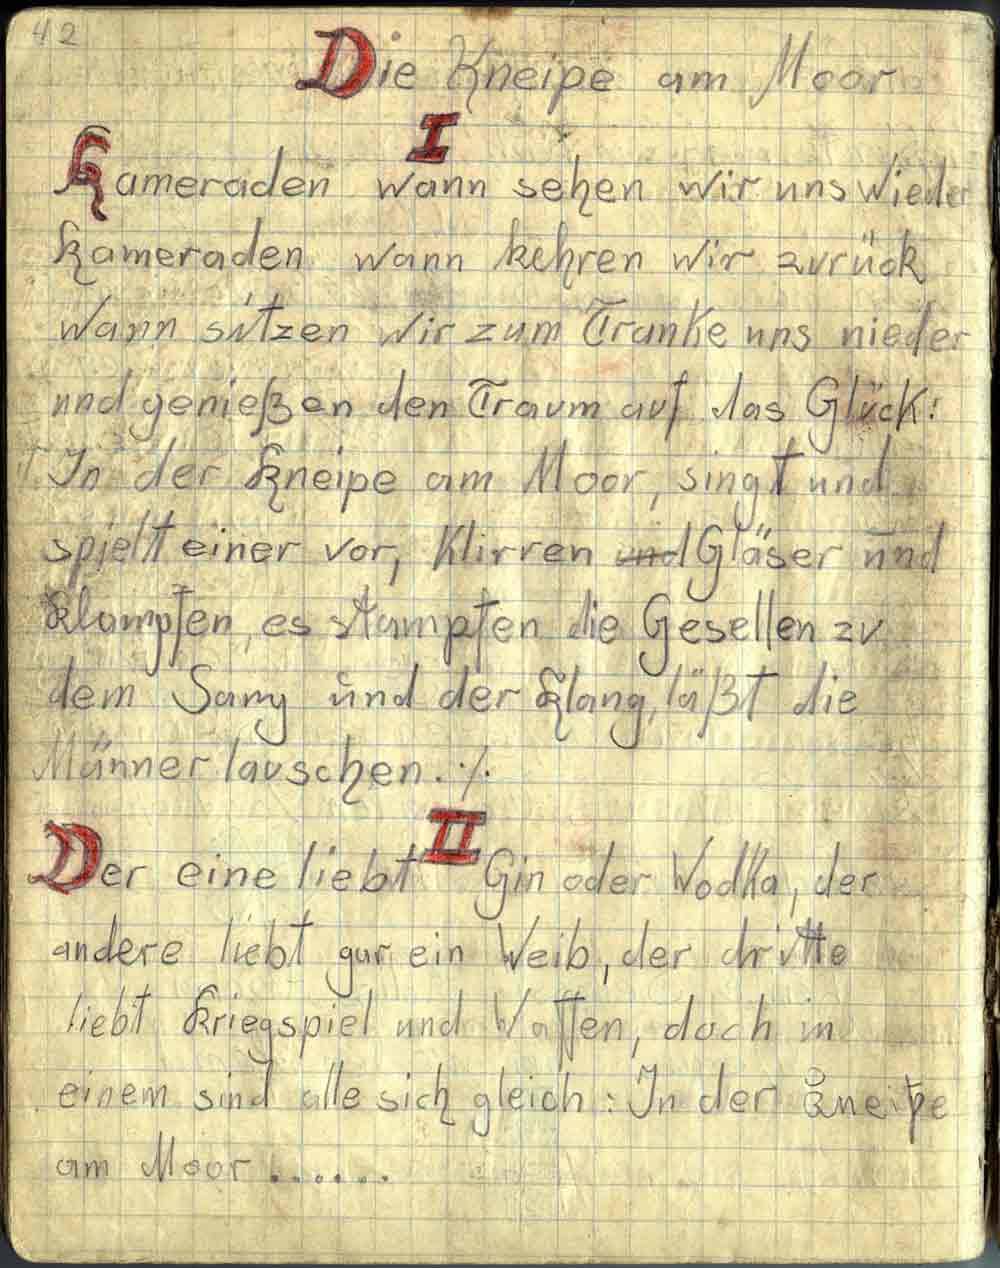 42
Die Kneipe am Moor
I
Kameraden wann sehen wir uns wieder
Kameraden wann kehren wir zurück
Wann sitzen wir zum Tranke uns nieder
und genießen den Traum auf das Glück:
In der Kneipe am Moor, singt und
spielt einer vor, Klirren und Gläser und
Klampfen, es stampfen die Gesellen zu
dem Sang und der Klang, läßt die
Männer lauschen. ./.
II
Der eine liebt Gin oder Wodka, der
andere liebt gar ein Weib, der dritte
liebt Kriegspiel und Waffen, doch in
einem sind alle sich gleich: In der Kneipe
am Moor......